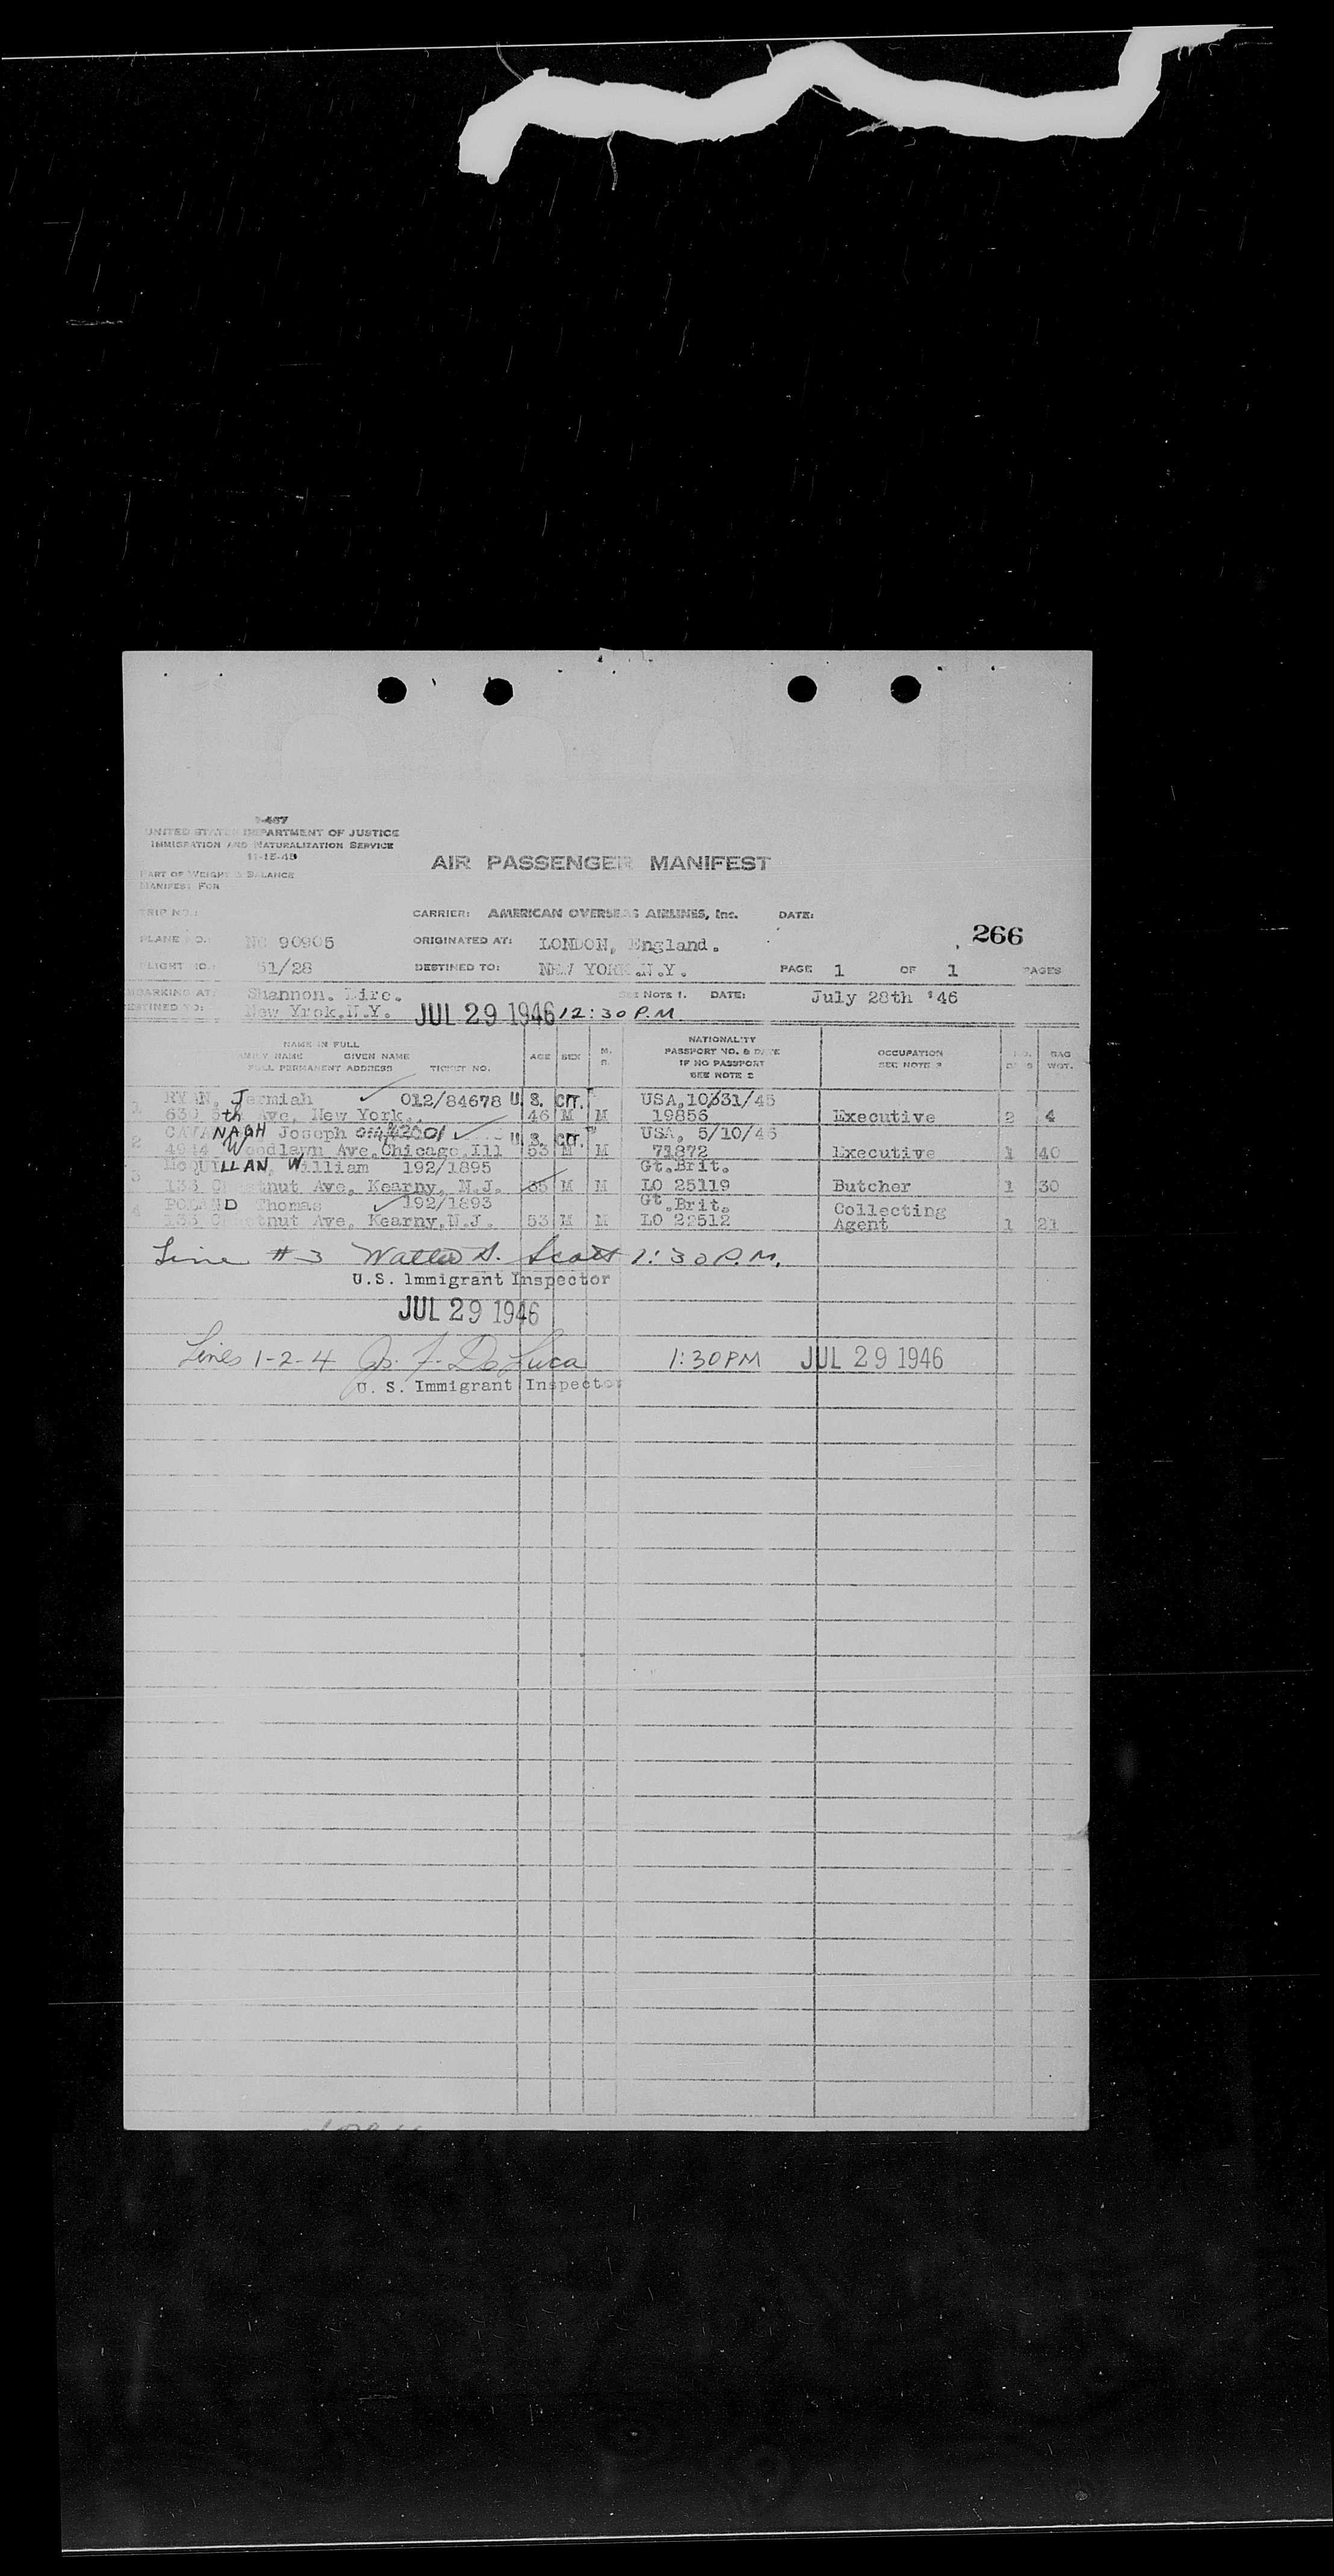 I-467
UNITED STATES DEPARTMENT OF JUSTICE
IMMIGRATION AND NATURALIZATION SERVICE
11-15-45
AIR PASSENGER MANIFEST
PART OF WEIGHT & BALANCE
MANIFEST FOR
TRIP NO.:
CARRIER: AMERICAN OVERSEAS AIRLINES, Inc. DATE:
266
PLANE NO.: NC 90905 ORIGINATED AT: LONDON, England.
FLIGHT NO.: 51/28 DESTINED TO: NEW YORK.N.Y. PAGE 1 OF 1 PAGES
EMBARKING AT: Shannon. Eire. SEE NOTE 1. DATE: July 28th '46
DESTINED TO: New Yrok.N.Y. JUL 29 1946 12:30 P.M
NAME IN FULL
FAMILY NAME GIVEN NAME
FULL PERMANENT ADDRESS TICKET NO.
AGE SEX M. S.
NATIONALITY
PASSPORT NO. & DATE
IF NO PASSPORT
SEE NOTE 2
OCCUPATION
SEE NOTE 3
BAG WGT.
1 RYAN, Jermiah 012/84678 U.S. CIT. USA,10/31/45
630 5th Ave, New York. 46 M M 19856 Executive 2 4
2 CAVANAGH Joseph U.S. CIT. USA, 5/10/46
Woodlawn Ave.Chicago.Ill 53 M M 71872 Executive 1 40
3 McQUILLAN, William 192/1895 Gt.Brit.
133 Chestnut Ave, Kearny, N.J. 35 M M LO 25119 Butcher 1 30
4 POLAND Thomas 192/1893 Gt.Brit. Collecting
133 Chestnut Ave. Kearny.N.J. 53 M M LO 22512 Agent 1 21
Line #3 Walter S. Scott 1:30 P.M.
U.S. Immigrant Inspector
JUL 29 1946
Lines 1-2-4 Jos. F. De Luca 1:30PM JUL 29 1946
U. S. Immigrant Inspector